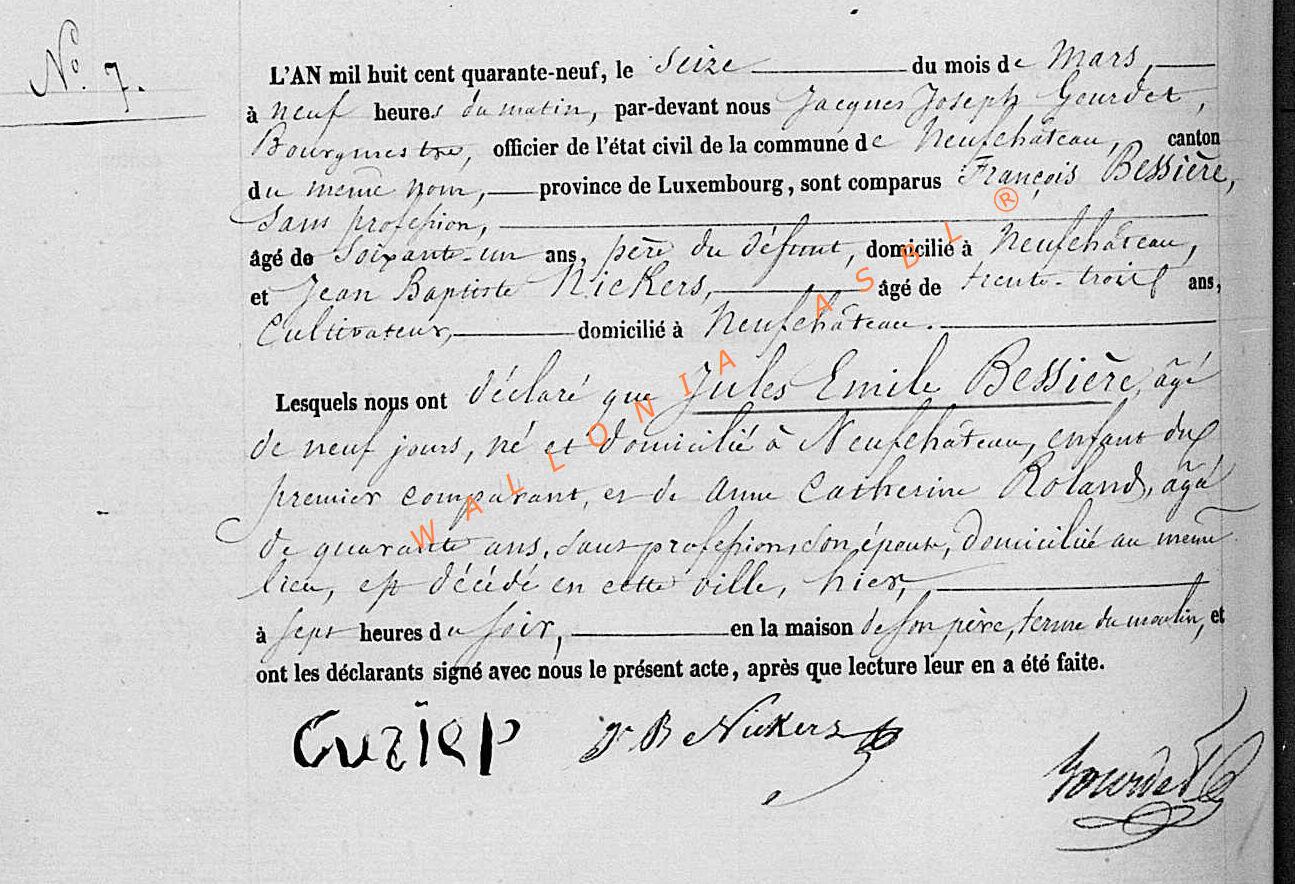 No. 7.
L'AN mil huit cent quarante-neuf, le Seize du mois de Mars,
à neuf heures du matin, par-devant nous Jacques Joseph Gourdet,
Bourgmestre, officier de l'état civil de la commune de Neufchâteau, canton
du même nom, province de Luxembourg, sont comparus François Bessière,
sans profession,
âgé de soixante-un ans, père du défunt, domicilié à Neufchâteau,
et Jean Baptiste Nickers, âgé de trente-trois ans,
Cultivateur, domicilié à Neufchâteau.
Lesquels nous ont déclaré que Jules Emile Bessière, âgé
de neuf jours, né et domicilié à Neufchâteau, enfant du
premier comparant, et de Anne Catherine Roland, âgé
de quarante ans, sans profession, son épouse, domiciliée au même
lieu, est décédé en cette ville, hier,
à sept heures du soir, en la maison de son père, terme du moulin, et
ont les déclarants signé avec nous le présent acte, après que lecture leur en a été faite.
J. B Nickers
Gourdet
WALLONIA ASBL ®